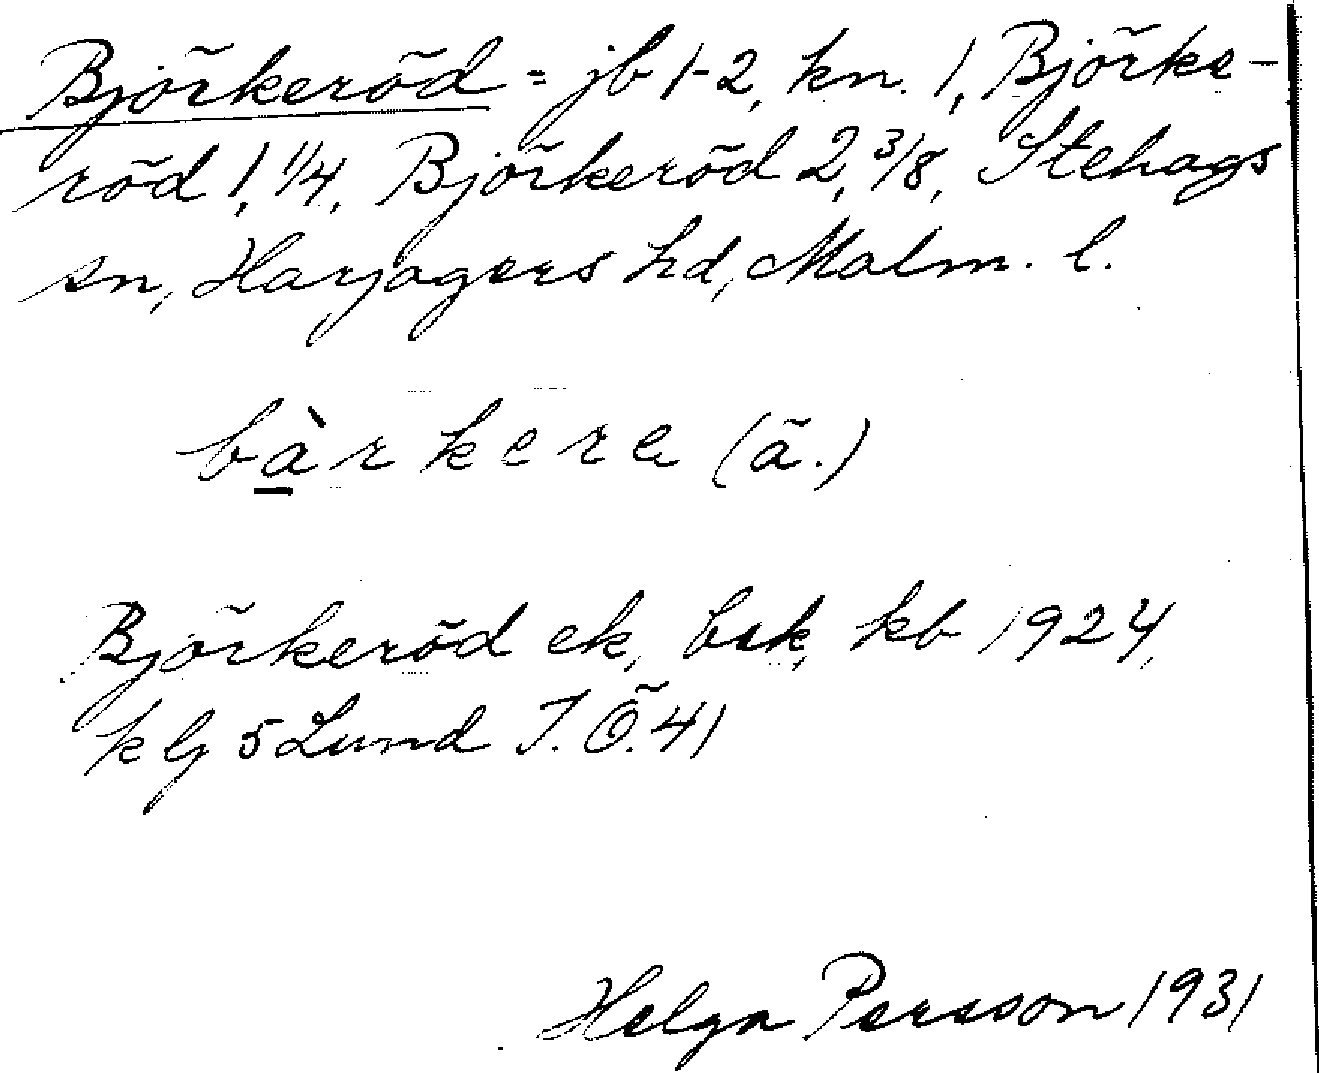 Björkeröd = jb 1-2, kn. 1, Björke-
röd 1, 1/4, Björkeröd 2, 3/8, Stehags
sn, Harjagers hd, Malm. l.
bàrkere (ä.)
Björkeröd ek, bsk, kb 1924,
kbl 5 Lund T. Ö. 41
Helga Persson 1931